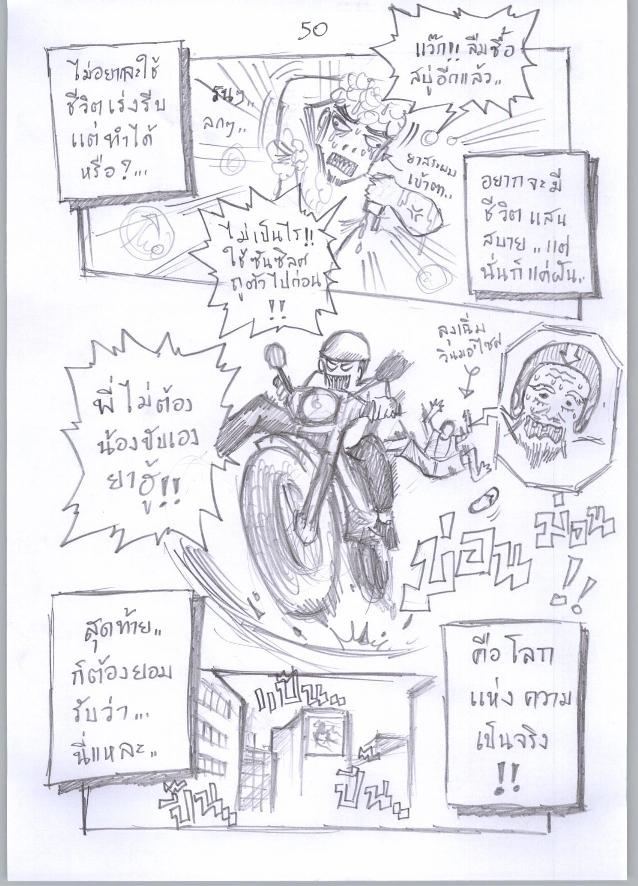 50
ไม่อยากจะใช้
ชีวิตเร่งรีบ
แต่ทำได้
หรือ?...
แว๊ก!! ลืมซื้อ
สบู่อีกแล้ว..
รนๆ..
ลกๆ..
ยาสระผม
เข้าตา..
อยากจะมี
ชีวิตแสน
สบาย..แต่
นั่นก็แค่ฝัน..
ไม่เป็นไร!!
ใช้ซันซิลค
ถูตัวไปก่อน
!!
ลุงเฉิ่ม
วินมอไซค์
พี่ไม่ต้อง
น้องขับเอง
ยาฮู้!!
สุดท้าย..
ก็ต้องยอม
รับว่า...
นี่แหละ..
คือโลก
แห่งความ
เป็นจริง
!!
แป๊น..
ปี๊น..